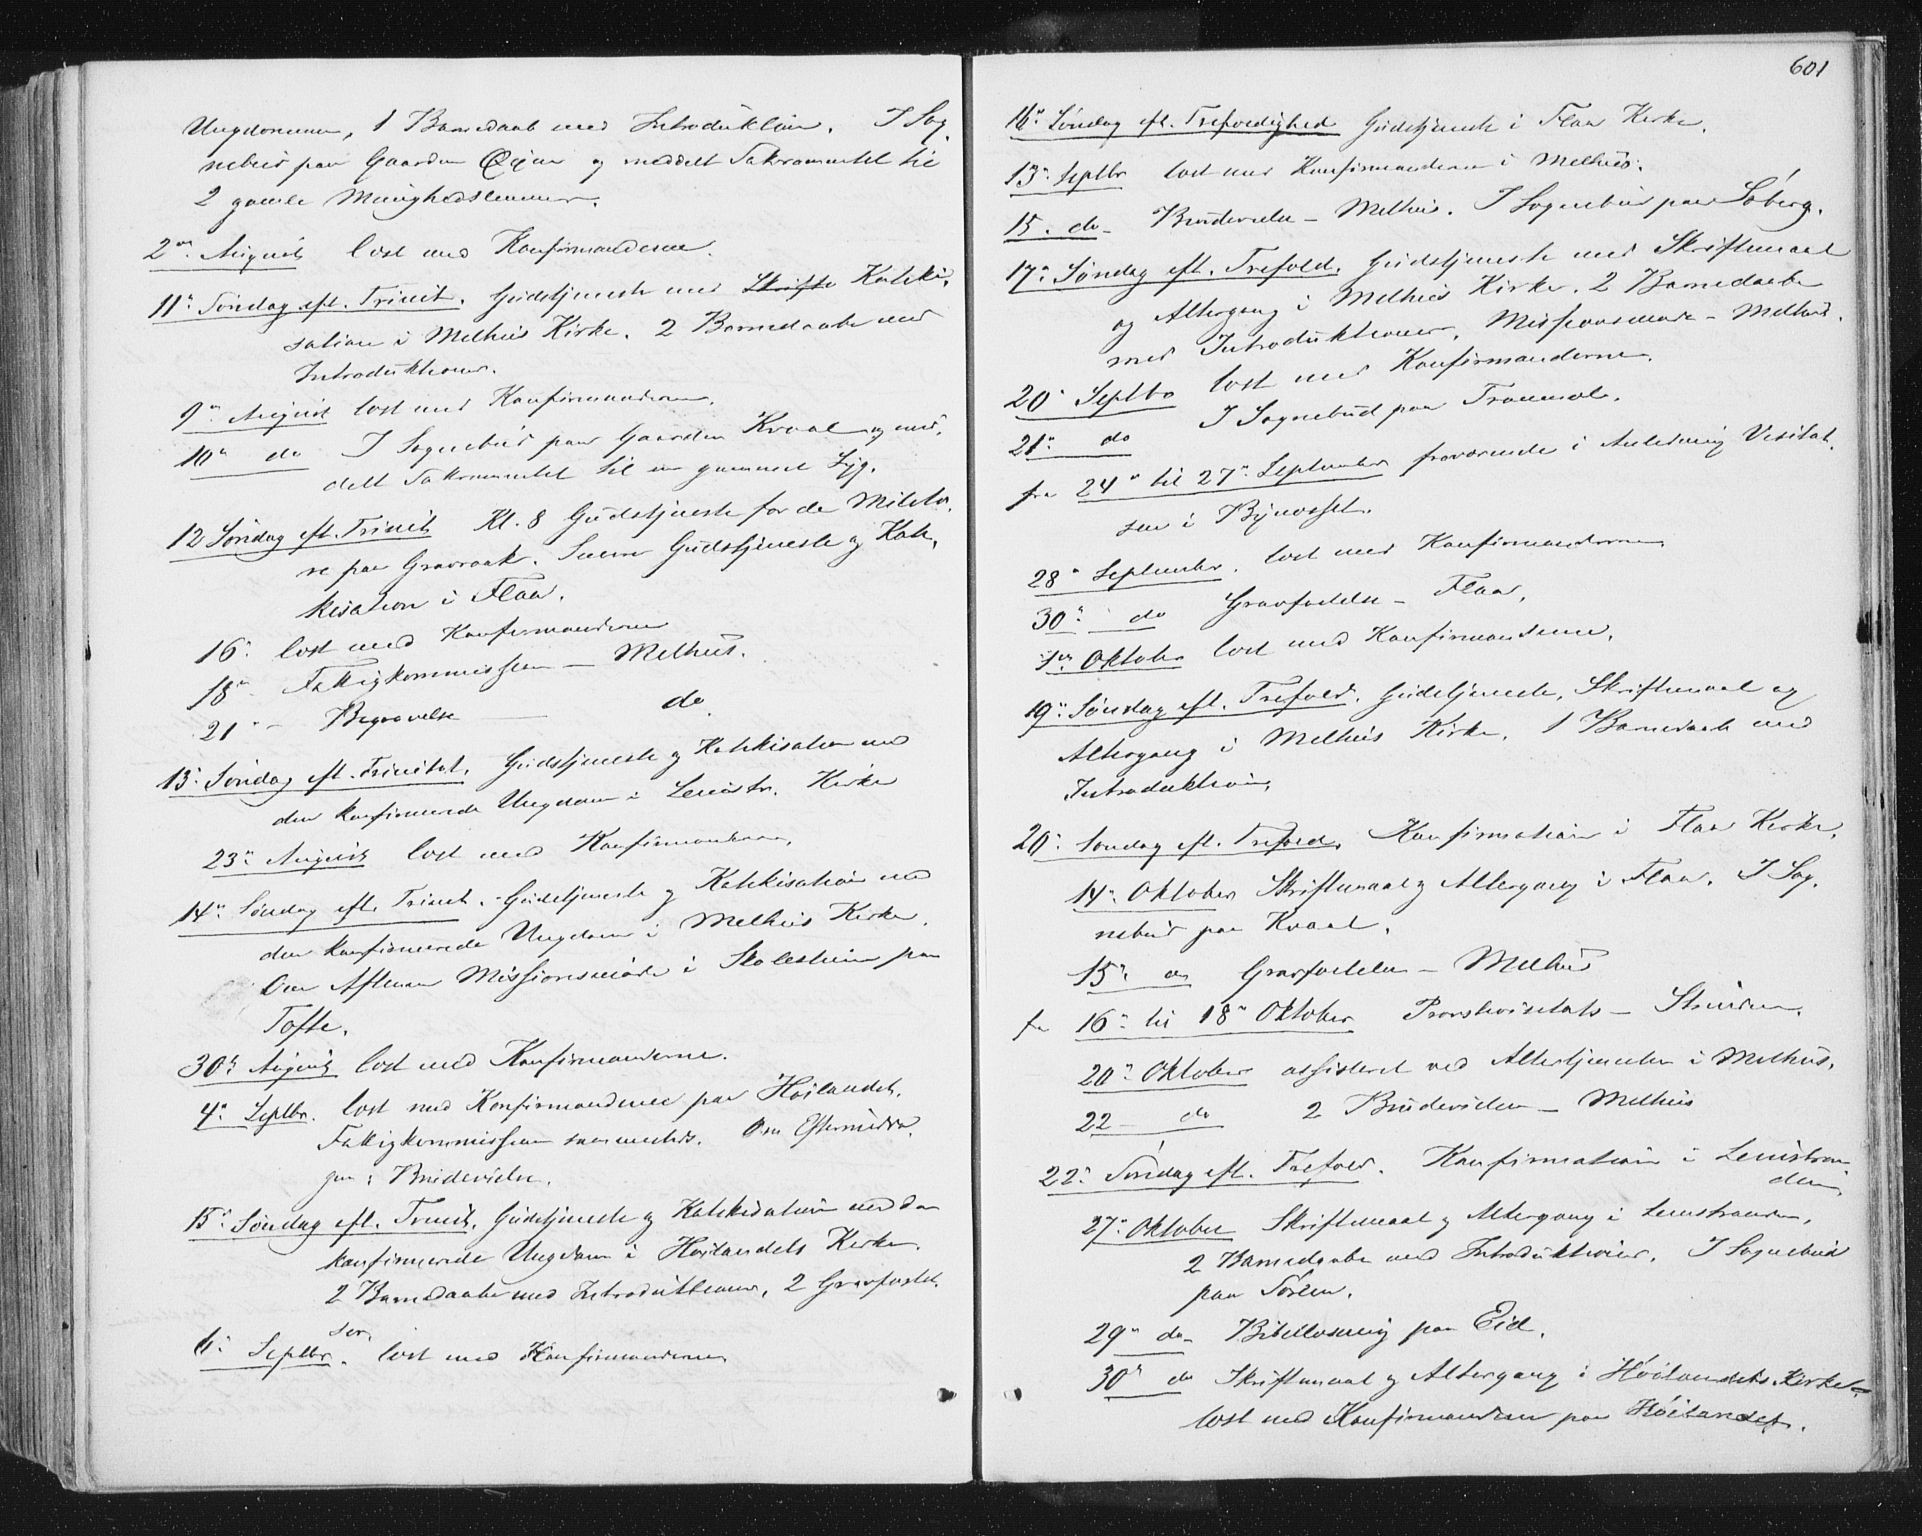 Ungdommen, 1 Barnedaab med Introduktion. I Sog,
nebud paa Gaarden Øijen og meddelt Sakramentet til
2 gamle Menighedslemmer.
2den August læst med Konfirmanderne.
11te Søndag eft. Trinit. Gudstjeneste med Skrifte Kateki,
sation i Melhus Kirke. 2 Barnedaabe med
Introduktioner.
9de August læst med Konfirmanderne.
10de do I Sognebud paa Gaarden Kvaal og med,
delt Sakramentet til en gammel Syg.
12 Søndag eft. Trinit. Kl. 8 Gudstjeneste for de Militæ,
re paa Gravraak. Samme Gudstjeneste og Kate,
kisation i Flaa.
16. læst med Konfirmanderne
18de Fattigkommission — Melhus.
21 - Begravelse — do
13de Søndag eft. Trinitat. Gudstjeneste og Katekisation med
den konfirmerede Ungdom i Leinstr. Kirke
23de August læst med Konfirmanderne.
14de Søndag eft. Trinit. Gudstjeneste og Katekisation med
den konfirmerede Ungdom i Melhus Kirke.
Om Aftenen Missionsmøde i Skolestuen paa
Tofte.
30te August læst med Konfirmanderne.
4de Septbr. læst med Konfirmanderne paa Høilandet.
Fattigkommission sammesteds. Om Eftermidda,
gen: Brudevielse.
15de Søndag eft. Trinit. Gudstjeneste og Katekisation med den
konfirmerede Ungdom i Høilandets Kirke.
2 Barnedaabe med Introduktioner, 2 Gravfæstel,
ser.
6te Septbr. læst med Konfirmanderne
601
16de Søndag eft. Trefoldighed Gudstjeneste i Flaa Kirke.
13de Septbr læst med Konfirmanderne i Melhus.
15. do - Brudevielse — Melhus. I Sognebud paa Søberg.
17de Søndag eft. Trefold. Gudstjeneste med Skriftemaal
og Altergang i Melhus Kirke. 2 Barnedaabe
med Introduktioner. Missionsmøde — Melhus.
20de Septbr læst med Konfirmanderne.
21de do I Sognebud paa
fra 24de til 27de September fraværende i Anledning Visitat,
sen i Bynesset.
28de September. læst med Konfirmanderne
30te do Gravfæstelse — Flaa.
4de Oktober læst med Konfirmanderne.
19de Søndag eft. Trefold. Gudstjeneste, Skriftemaal og
Altergang i Melhus Kirke. 1 Barnedaab med
Introduktion.
20de Søndag eft. Trefold. Konfirmation i Flaa Kirke.
14de Oktober Skriftemaal og Altergang i Flaa. I Sog,
nebud paa Kvaal.
15de do Gravfæstelse — Melhus
fra 16de til 18de Oktober Provstevisitats — Strinden.
20de Oktober assisteret ved Altertjenesten i Melhus.
22 — do 2 Brudevielser — Melhus
22de Søndag eft. Trefold. Konfirmation i Leinstran,
den
27de Oktober Skriftemaal og Altergang i Leinstranden.
2 Barnedaabe med Introduktioner. I Sognebud
paa Sørem.
29de do - Bibellæsning paa Eid.
30te do Skriftemaal og Altergang i Høilandets Kirke —
læst med Konfirmanderne paa Høilandet.